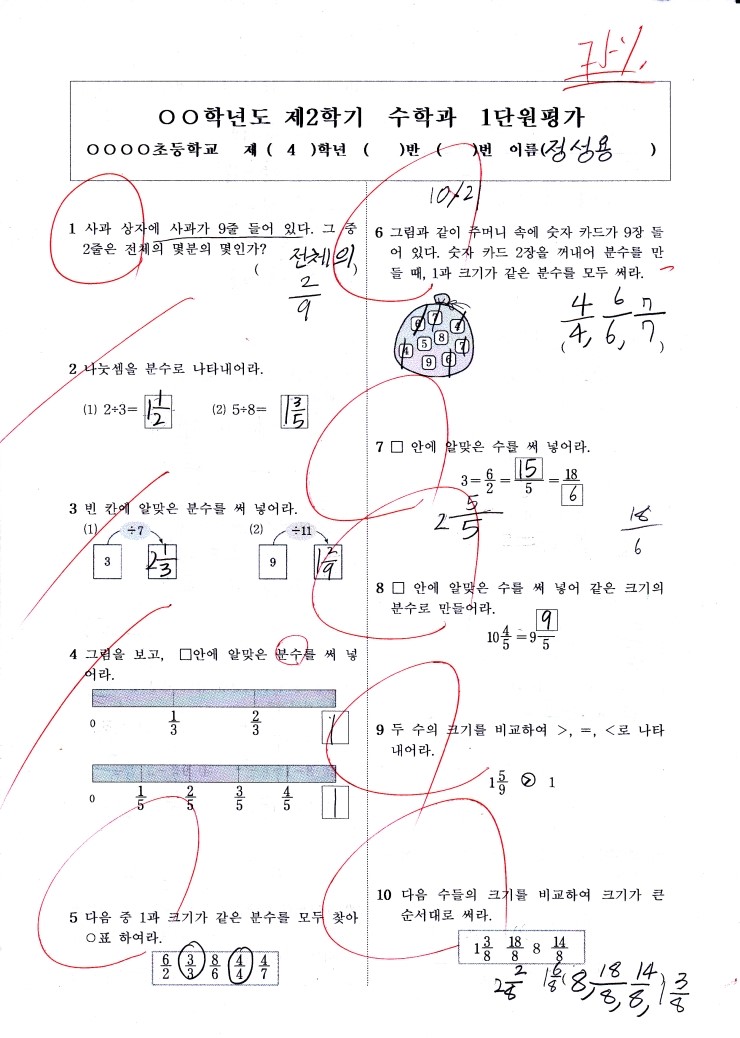 75%
○○학년도 제2학기 수학과 1단원평가
○○○○초등학교 제 ( 4 )학년 ( )반 ( )번 이름(정성용 )
1 사과 상자에 사과가 9줄 들어 있다. 그 중
2줄은 전체의 몇분의 몇인가?
( 전체의 2/9 )
2 나눗셈을 분수로 나타내어라.
(1) 2÷3= 1 1/2 (2) 5÷8= 1 3/5
3 빈 칸에 알맞은 분수를 써 넣어라.
(1) ÷7 (2) ÷11
3 2 1/3 9 1 2/9
4 그림을 보고, □안에 알맞은 분수를 써 넣
어라.
0 1/3 2/3 1
0 1/5 2/5 3/5 4/5 1
5 다음 중 1과 크기가 같은 분수를 모두 찾아
○표 하여라.
6/2 3/3 8/6 4/4 4/7
6 그림과 같이 주머니 속에 숫자 카드가 9장 들
어 있다. 숫자 카드 2장을 꺼내어 분수를 만
들 때, 1과 크기가 같은 분수를 모두 써라.
6 7 4
4 5 8 7
9 6
( 4/4, 6/6, 7/7 )
7 □ 안에 알맞은 수를 써 넣어라.
3= 6/2 = 15/5 = 18/6
2 5/5
18/6
8 □ 안에 알맞은 수를 써 넣어 같은 크기의
분수로 만들어라.
10 4/5 = 9 9/5
9 두 수의 크기를 비교하여 >, =, <로 나타
내어라.
1 5/9 > 1
10 다음 수들의 크기를 비교하여 크기가 큰
순서대로 써라.
1 3/8 18/8 8 14/8
2 2/8 1 6/8 (8, 18/8, 14/8, 1 3/8